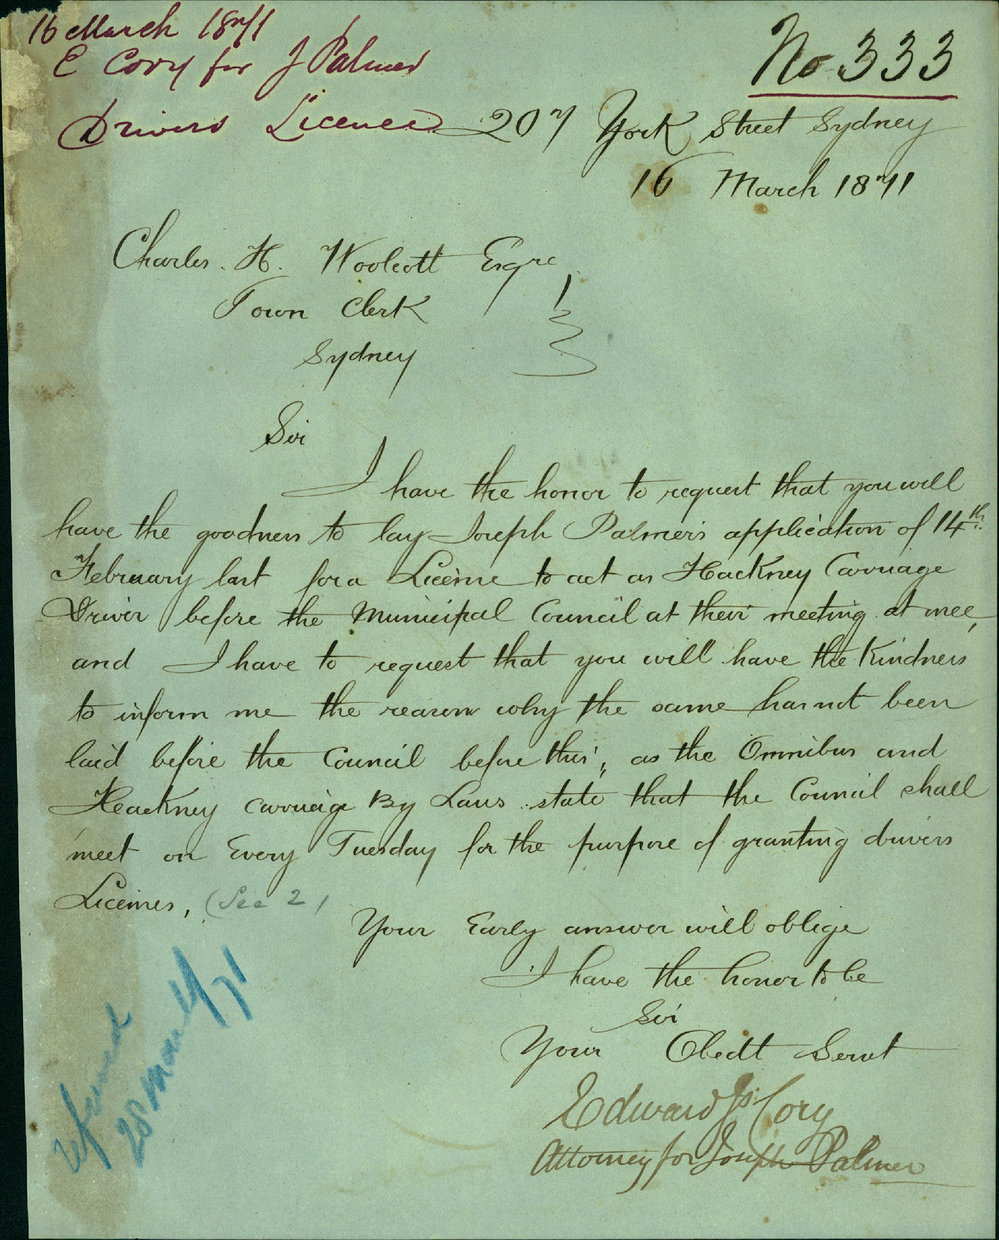 16 March 1871
E Cory for J Palmer
Drivers Licence
No 333
207 York Street Sydney
16 March 1871
Charles. H. Woolcott Esqre
Town Clerk
Sydney
Sir
I have the honor to request that you will
have the goodness to lay Joseph Palmer's application of 14th
February last for a License to act as Hackney Carriage
Driver before the Municipal Council at their meeting
and I have to request that you will have the Kindness
to inform me the reason why the same has not been
laid before the Council before this, as the Omnibus and
Hackney carriage By Laws state that the Council shall
meet on Every Tuesday for the purpose of granting drivers
Licenses, (Sec 2)
Your Early answer will oblige
I have the honor to be
Sir
Your Obedt Servt
Edward Js Cory
Attorney for Joseph Palmer
refused
28 March/71